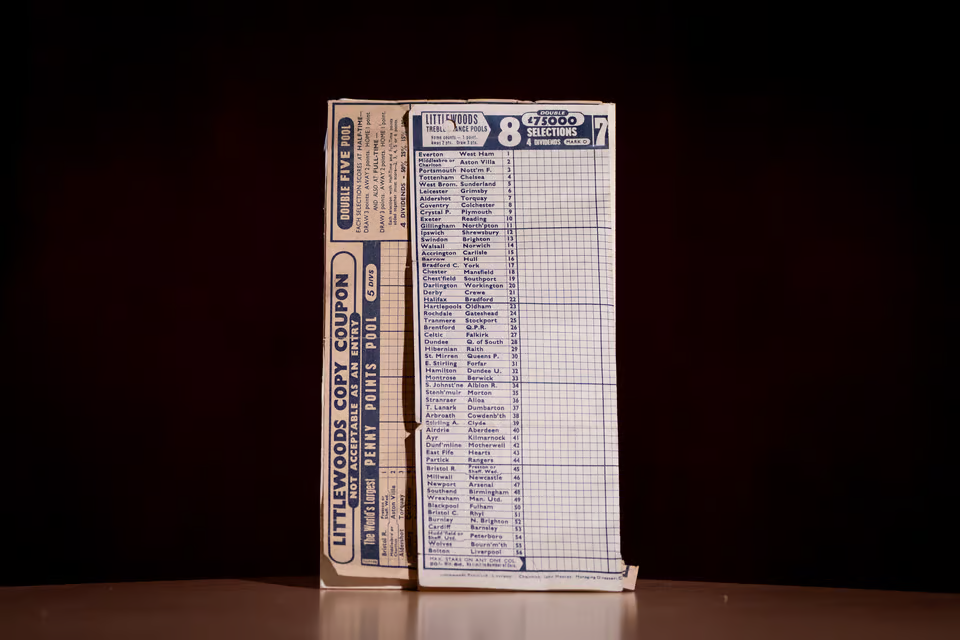 LITTLEWOODS COPY COUPON
NOT ACCEPTABLE AS AN ENTRY
The World's Largest PENNY POINTS POOL 5 DIVS
DOUBLE FIVE POOL
EACH SELECTION SCORES AT HALF-TIME—
DRAW 3 points. AWAY 2 points. HOME 1 point.
AND ALSO AT FULL-TIME—
DRAW 3 points. AWAY 2 points. HOME 1 point.
4 DIVIDENDS
Bristol R. 1
Aston Villa 2
Aldershot Torquay 3
LITTLEWOODS
TREBLE CHANCE POOLS
Home counts - 1 point.
Away 2 pts. Draw 3 pts.
8
DOUBLE
£75000
SELECTIONS
4 DIVIDENDS MARK O
7
Everton West Ham 1
Middlesbro or Charlton Aston Villa 2
Portsmouth Nott'm F. 3
Tottenham Chelsea 4
West Brom. Sunderland 5
Leicester Grimsby 6
Aldershot Torquay 7
Coventry Colchester 8
Crystal P. Plymouth 9
Exeter Reading 10
Gillingham North'pton 11
Ipswich Shrewsbury 12
Swindon Brighton 13
Walsall Norwich 14
Accrington Carlisle 15
Barrow Hull 16
Bradford C. York 17
Chester Mansfield 18
Chest'field Southport 19
Darlington Workington 20
Derby Crewe 21
Halifax Bradford 22
Hartlepools Oldham 23
Rochdale Gateshead 24
Tranmere Stockport 25
Brentford Q.P.R. 26
Celtic Falkirk 27
Dundee Q. of South 28
Hibernian Raith 29
St. Mirren Queens P. 30
E. Stirling Forfar 31
Hamilton Dundee U. 32
Montrose Berwick 33
S. Johnst'ne Albion R. 34
Stenh'muir Morton 35
Stranraer Alloa 36
T. Lanark Dumbarton 37
Arbroath Cowdenb'th 38
Stirling A. Clyde 39
Airdrie Aberdeen 40
Ayr Kilmarnock 41
Dunf'mline Motherwell 42
East Fife Hearts 43
Partick Rangers 44
Bristol R. Preston or Sheff. Wed. 45
Millwall Newcastle 46
Newport Arsenal 47
Southend Birmingham 48
Wrexham Man. Utd. 49
Blackpool Fulham 50
Bristol C. Rhyl 51
Burnley N. Brighton 52
Cardiff Barnsley 53
Hudd'field or Sheff. Utd. Peterboro 54
Wolves Bourn'm'th 55
Bolton Liverpool 56
MAX. STAKE ON ANY ONE COL.